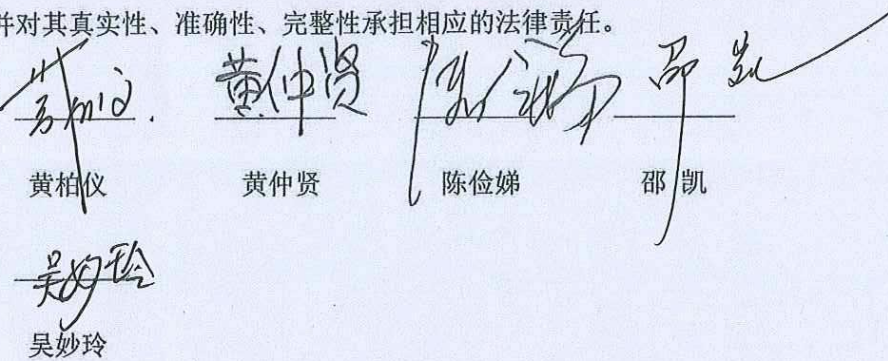 并对其真实性、准确性、完整性承担相应的法律责任。
黄仲贤 邵凯
黄柏仪 黄仲贤 陈俭娣 邵 凯
吴妙玲
吴妙玲